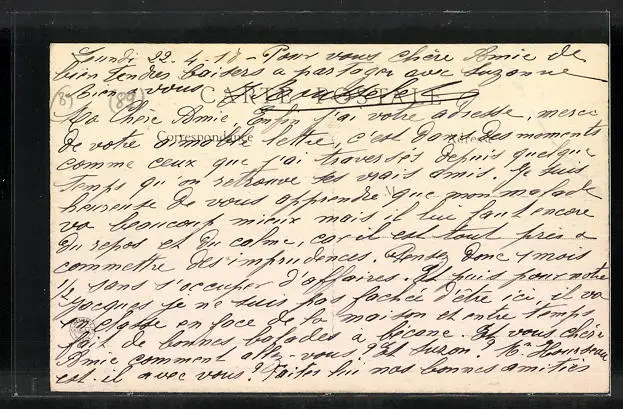 Lundi 22-4-18 - Pour vous chère Amie de
bien tendres baisers a partager avec Suzanne
Bien a vous
(89) (89) CARTE POSTALE
Ma Chère Amie, Enfin j'ai votre adresse, merci
Correspondance
de votre aimable lettre, c'est dans des moments
comme ceux que j'ai traversés depuis quelque
temps qu'on retrouve ses vrais amis. Je suis
heureuse de vous apprendre que mon malade
va beaucoup mieux mais il lui faut encore
du repos et du calme, car il est tout près a
commettre des imprudences. Pensez donc 4 mois
1/2 sans s'occuper d'affaires. Et puis pour notre
Jacques je ne suis pas fachée d'être ici, il va
en classe en face de la maison et entre temps
fait de bonnes balades à bicane. Et vous chère
Amie comment allez-vous? Et Suzon? Me
est-il avec vous? Faites lui nos bonnes amitiés